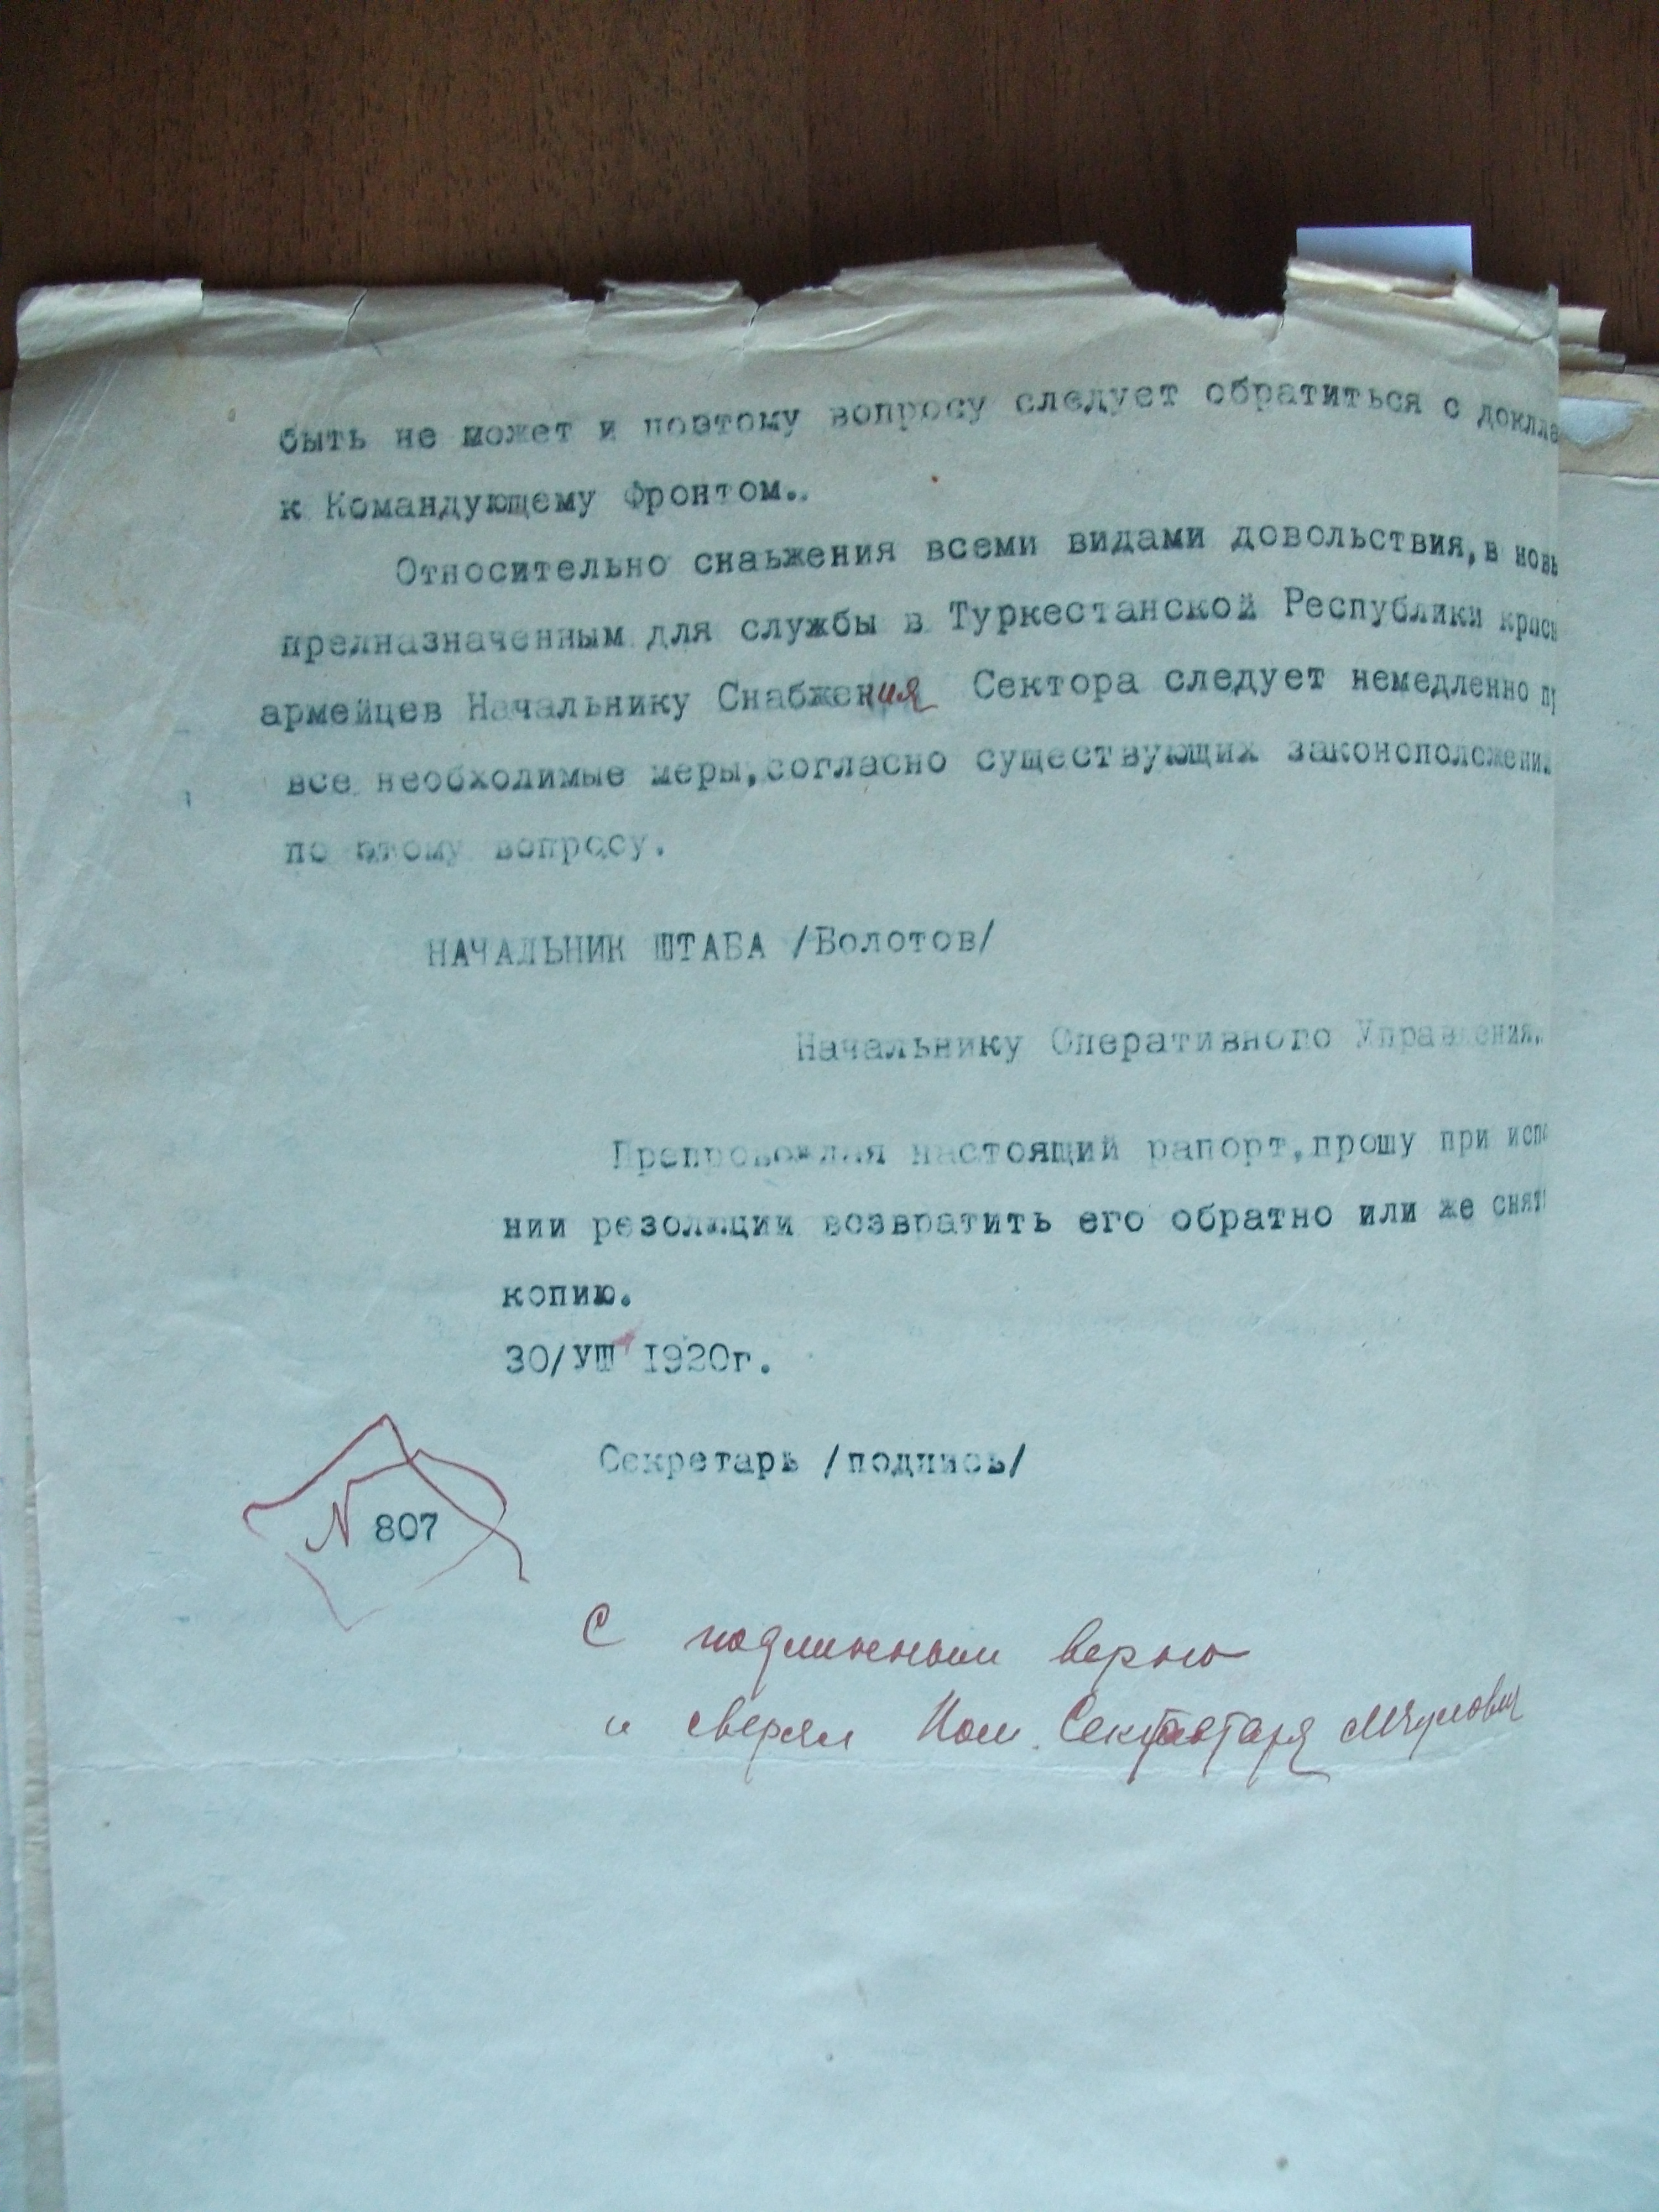 быть не может и поэтому вопросу следует обратиться с докла
к Командующему Фронтом..
Относительно снаьжения всеми видами довольствия,в новь
предназначенным для службы в Туркестанской Республики красн
армейцев Начальнику Снабжения Сектора следует немедленно пр
все необходимые меры,согласно существующих законоположени
по этому вопросу.
НАЧАЛЬНИК ШТАБА /Болотов/
Начальнику Оперативного Управления.
Препровождая настоящий рапорт,прошу при испо
нии резолюции возвратить его обратно или же снять
копию.
30/УШ 1920г.
Секретарь /подпись/
N 807
С подлинным верно
и сверял Пом. Секретаря